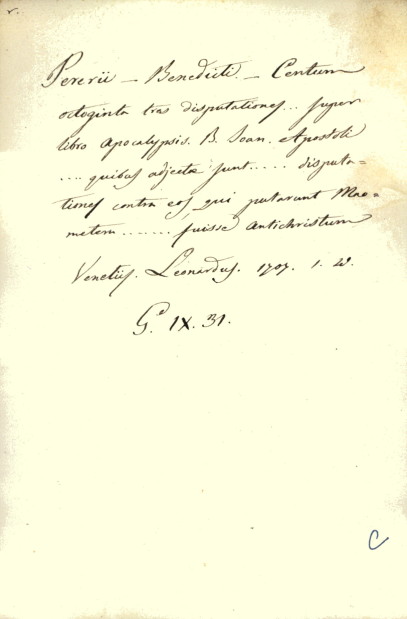 v.
Pererii – Benedicti – Centum
octoginta tres disputationes... super
libro Apocalypsis. B. Joan. Apostoli
.... quibus adjectæ sunt..... disputa=
tiones contra eos, qui putarunt Mao=
metem ....... fuisse Antichristum
Venetiis. Leonardus. 1707. 1.
G. IX. 31.
C